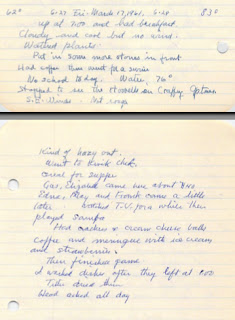 62° 5:27 Fri. March 17, 1961. 5:28 83°
up at 7:00 and had breakfast.
Cloudy and cool but no wind.
Watered plants.
Put in some more stones in front
Had coffee then went for a
No school today. Water, 76°
Stopped to see the
S.E. Winds.
Kind of hazy out.
Went to Bank
cereal for supper
Gus, Elizard came here about
Edna, May and Frank came a little
later. watched T.V. for a while then
played
Had crackers & cream cheese balls
coffee and meringues with ice cream
and strawberries.
Then finished game
I washed dishes after they left at 1:00
Tillie dried them
Head ached all day